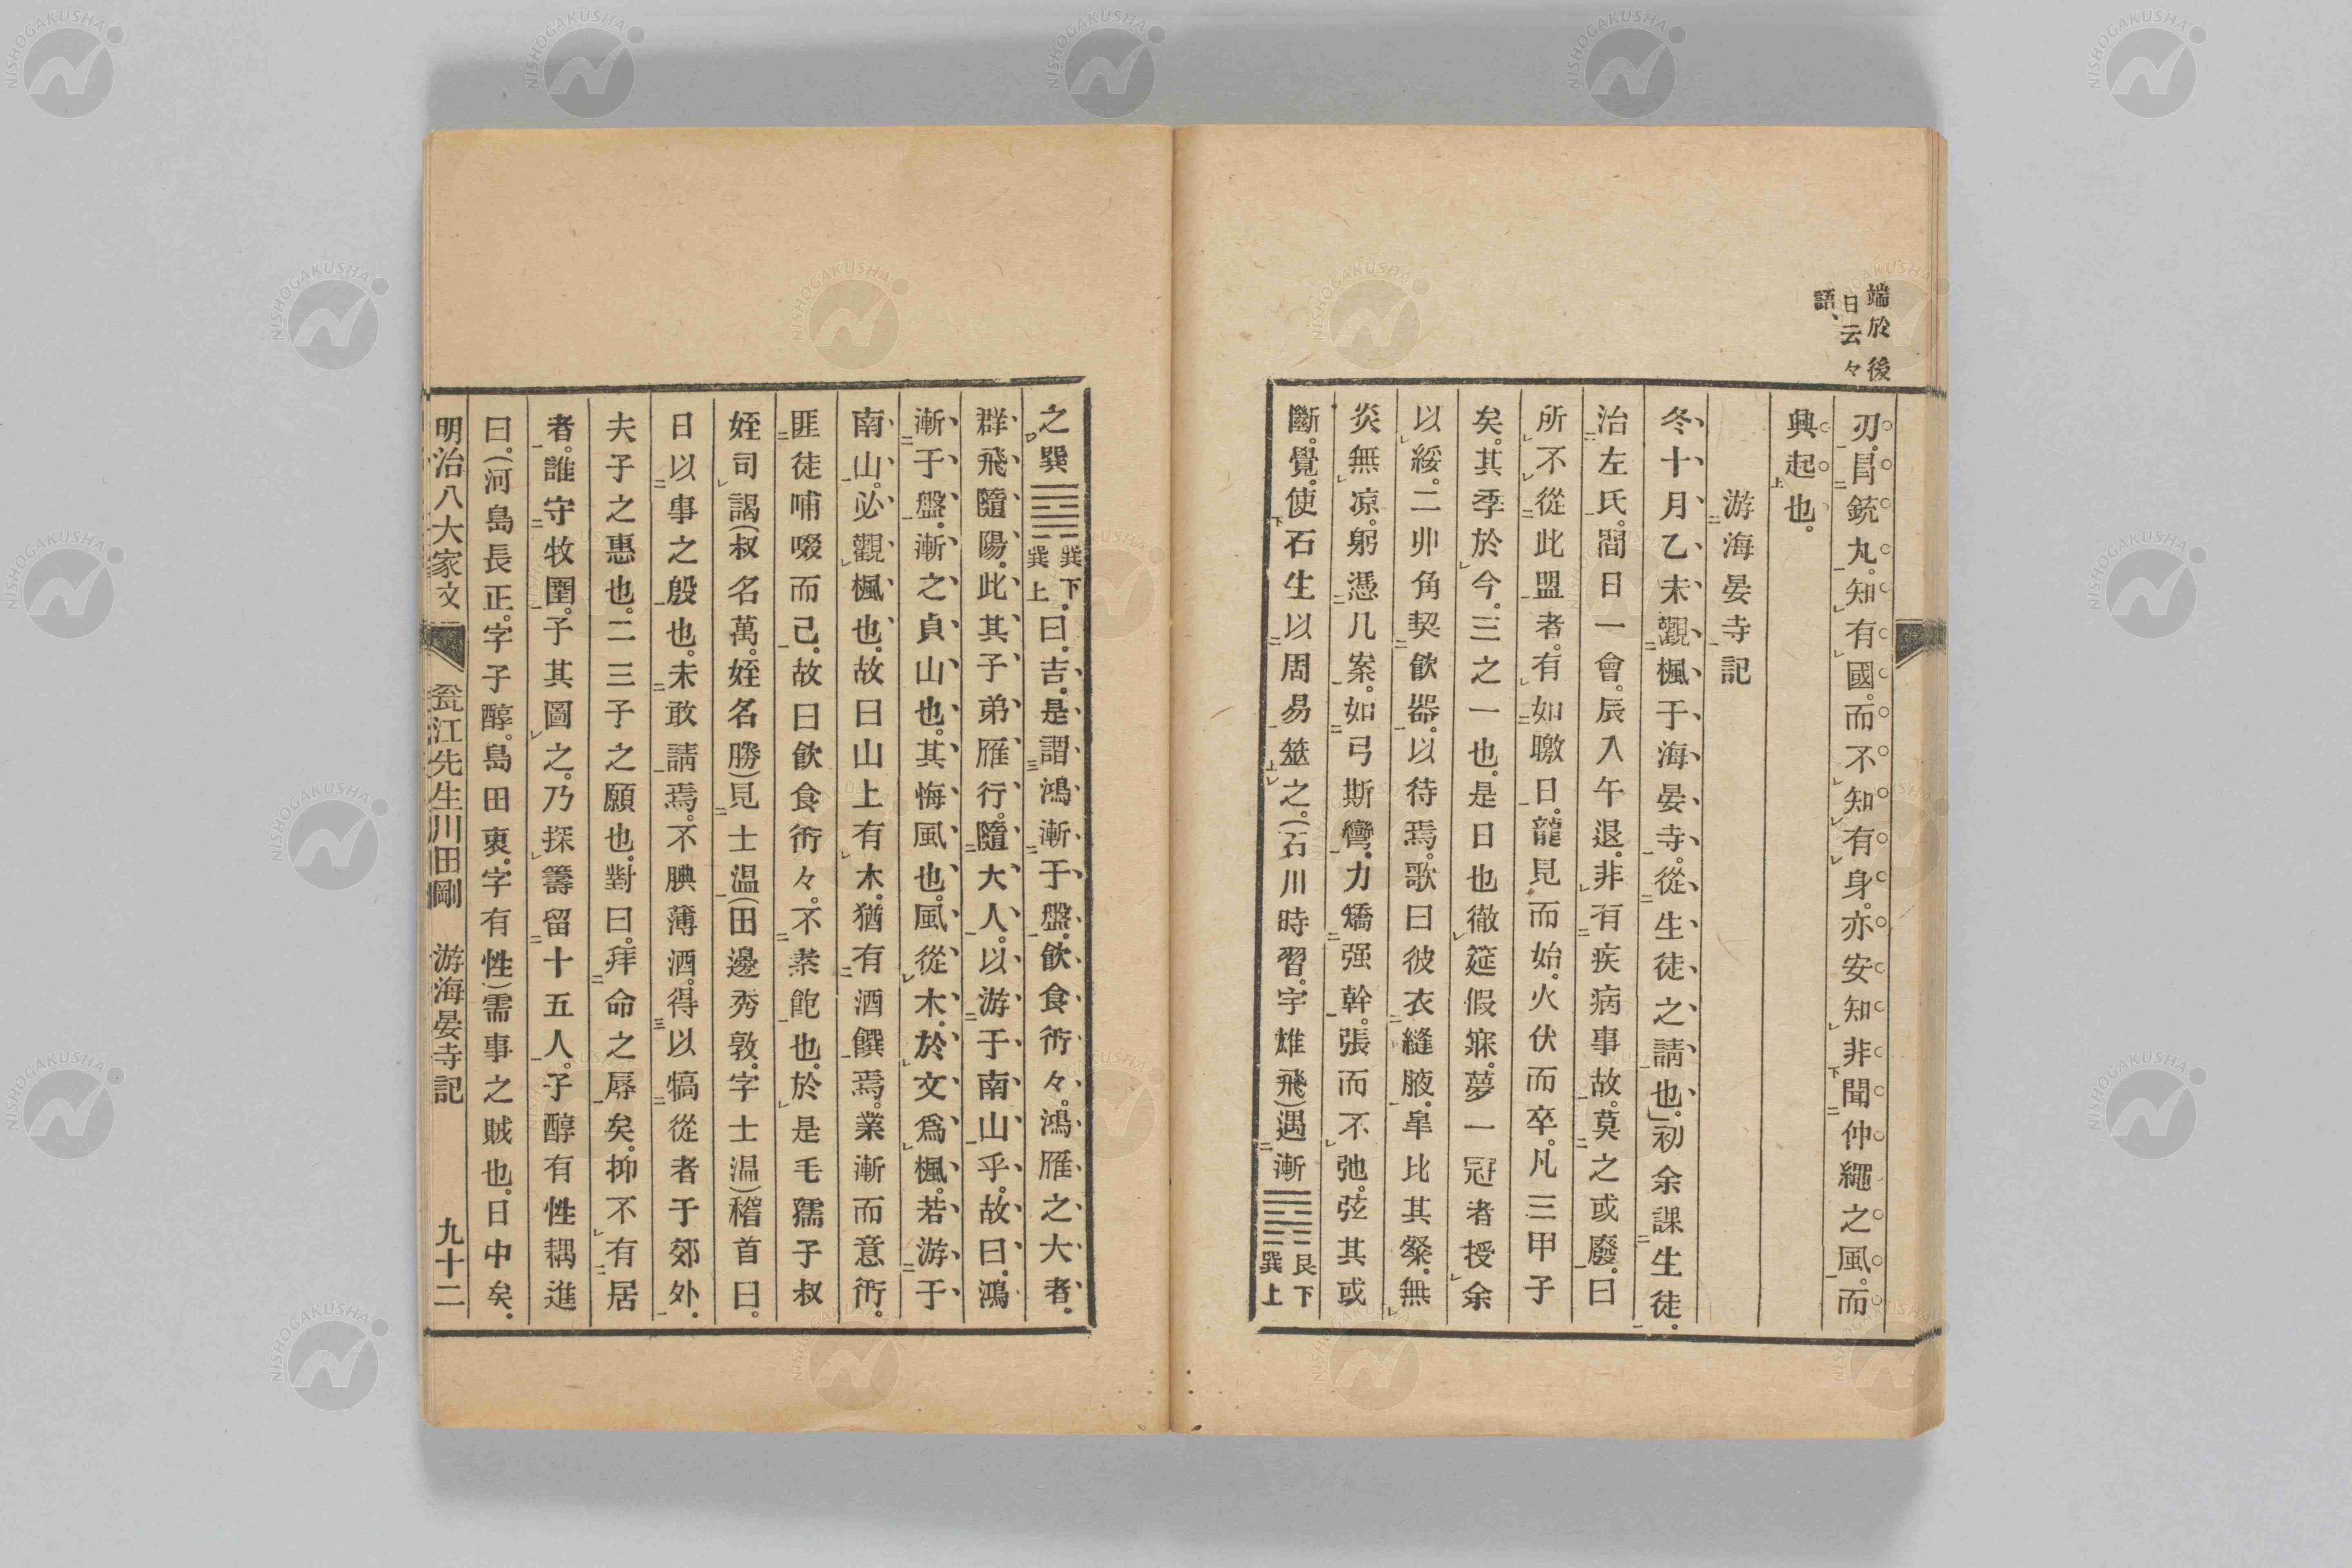 端於後
日云々
語、
刃。冒銃丸。知有國。而不知有身。亦安知非聞仲繩之風。而
興起也。
游海晏寺記
冬十月乙未。觀楓于海晏寺。從生徒之請也。」初余課生徒。
治左氏。間日一會。辰入午退。非有疾病事故。莫之或廢。曰
所不從此盟者。有如曒日。龍見而始。火伏而卒。凡三甲子
矣。其季於今。三之一也。是日也徹筵假寐。夢一冠者授余
以綏。二丱角契飲器。以待焉。歌曰彼衣縫腋。皐比其粲。無
炎無凉。躬憑几案。如弓斯彎。力矯强幹。張而不弛。弦其或
斷。覺。使石生以周易筮之。(石川時習。字雄飛)遇漸䷴艮下巽上
之巽䷸巽下巽上。曰。吉。是謂鴻漸于盤。飲食衎々。鴻雁之大者。
群飛隨陽。此其子弟雁行。隨大人。以游于南山乎。故曰。鴻
漸于盤。漸之貞山也。其悔風也。風從木。於文爲楓。若游于
南山。必觀楓也。故曰山上有木。猶有酒饌焉。業漸而意衎。
匪徒哺啜而己。故曰飲食衎々。不素飽也。於是毛孺子叔
姪司謁(叔名萬。姪名勝)見士温(田邊秀敦。字士温)稽首曰。
日以事之殷也。未敢請焉。不腆薄酒。得以犒從者于郊外。
夫子之惠也。二三子之願也。對曰。拜命之辱矣。抑不有居
者。誰守牧圉。子其圖之。乃探籌留十五人。子醇有性耦進
曰。(河島長正。字子醇。島田衷。字有性)需事之賊也。日中矣。
明治八大家文 二 甕江先生川田剛 游海晏寺記 九十二